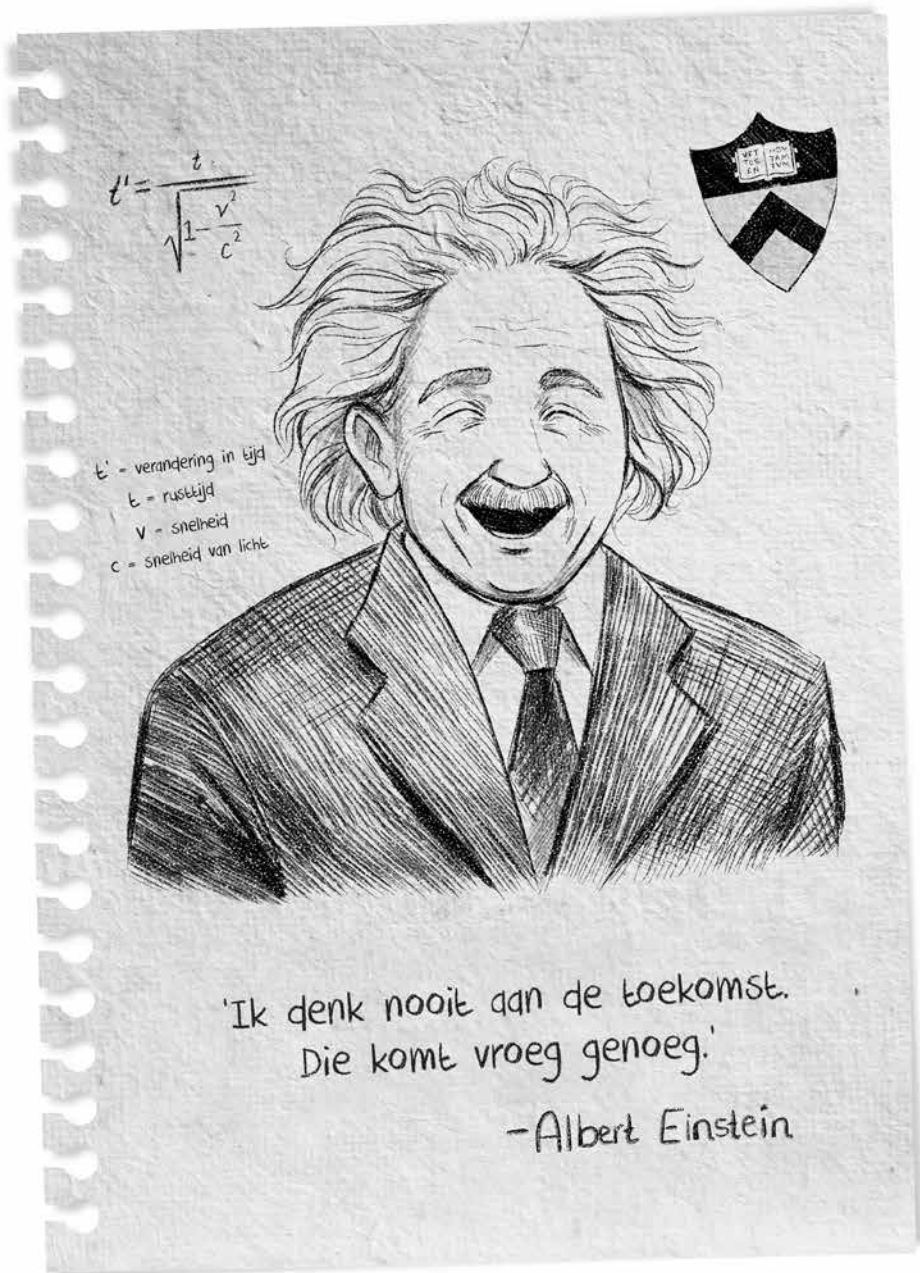 t' = t / √(1 - v²/c²)
VET NOV
TES TAM
EN TVM
t' = verandering in tijd
t = rusttijd
v = snelheid
c = snelheid van licht
'Ik denk nooit aan de toekomst.
Die komt vroeg genoeg.'
-Albert Einstein